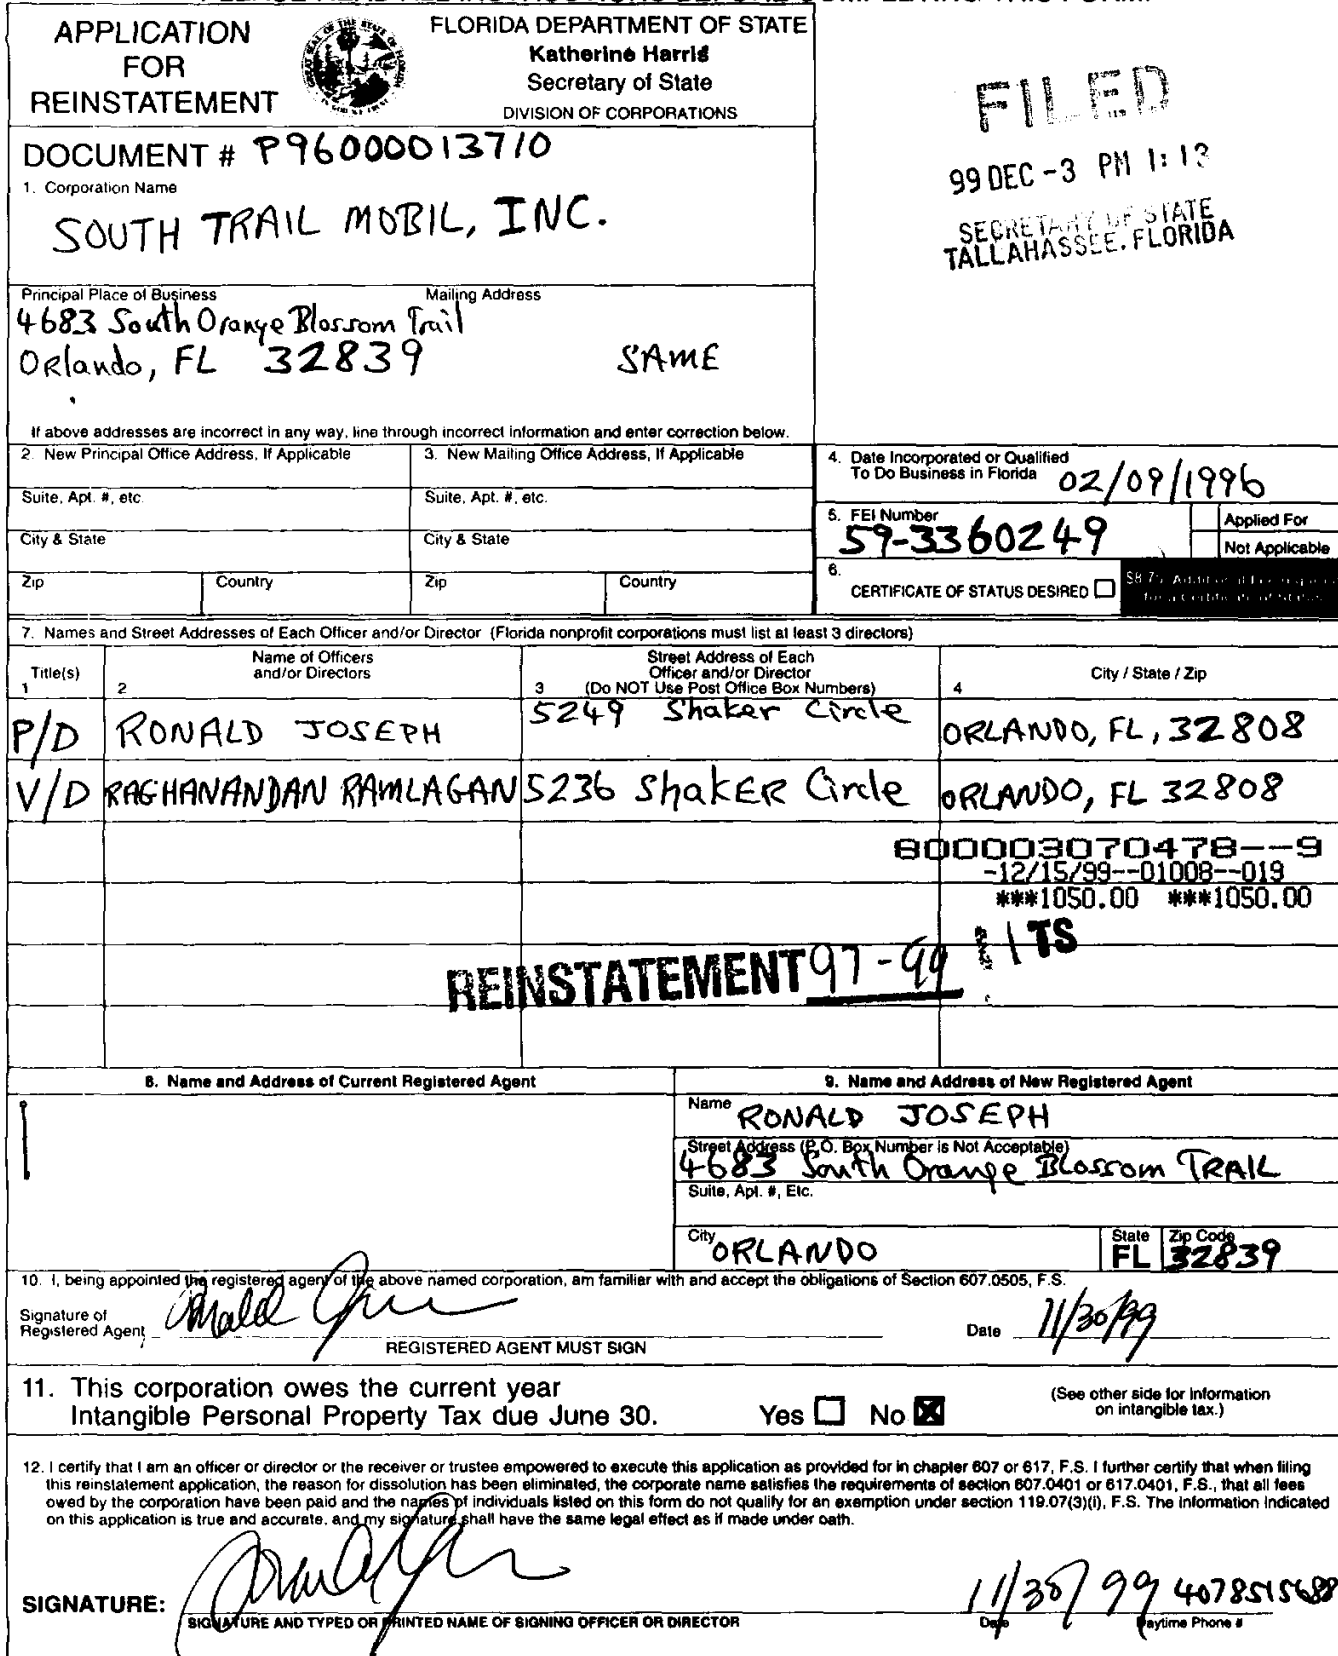 APPLICATION
FOR
REINSTATEMENT
FLORIDA DEPARTMENT OF STATE
Katherine Harris
Secretary of State
DIVISION OF CORPORATIONS
FILED
99 DEC -3 PM 1:13
SECRETARY OF STATE
TALLAHASSEE, FLORIDA
DOCUMENT # P96000013710
1. Corporation Name
SOUTH TRAIL MOBIL, INC.
Principal Place of Business
Mailing Address
4683 South Orange Blossom Trail
Orlando, FL 32839
SAME
If above addresses are incorrect in any way, line through incorrect information and enter correction below.
2. New Principal Office Address, If Applicable
3. New Mailing Office Address, If Applicable
Suite, Apt. #, etc.
Suite, Apt. #, etc.
City & State
City & State
Zip
Country
Zip
Country
4. Date Incorporated or Qualified
To Do Business in Florida 02/09/1996
5. FEI Number
59-3360249
Applied For
Not Applicable
6.
CERTIFICATE OF STATUS DESIRED
$8.75 Additional Fee required
for a Certificate of Status
7. Names and Street Addresses of Each Officer and/or Director (Florida nonprofit corporations must list at least 3 directors)
Title(s)
1
Name of Officers
and/or Directors
2
Street Address of Each
Officer and/or Director
3 (Do NOT Use Post Office Box Numbers)
City / State / Zip
4
P/D RONALD JOSEPH 5249 Shaker Circle ORLANDO, FL, 32808
V/D RAGHANANDAN RAMLAGAN 5236 Shaker Circle ORLANDO, FL 32808
800003070478--9
-12/15/99--01008--019
***1050.00 ***1050.00
REINSTATEMENT 97-99 TS
8. Name and Address of Current Registered Agent
9. Name and Address of New Registered Agent
Name RONALD JOSEPH
Street Address (P.O. Box Number is Not Acceptable)
4683 South Orange Blossom TRAIL
Suite, Apt. #, Etc.
City ORLANDO
State
FL
Zip Code
32839
10. I, being appointed the registered agent of the above named corporation, am familiar with and accept the obligations of Section 607.0505, F.S.
Signature of
Registered Agent
Date 11/30/99
REGISTERED AGENT MUST SIGN
11. This corporation owes the current year
Intangible Personal Property Tax due June 30. Yes No
(See other side for information
on intangible tax.)
12. I certify that I am an officer or director or the receiver or trustee empowered to execute this application as provided for in chapter 607 or 617, F.S. I further certify that when filing
this reinstatement application, the reason for dissolution has been eliminated, the corporate name satisfies the requirements of section 607.0401 or 617.0401, F.S., that all fees
owed by the corporation have been paid and the names of individuals listed on this form do not qualify for an exemption under section 119.07(3)(i), F.S. The information indicated
on this application is true and accurate, and my signature shall have the same legal effect as if made under oath.
SIGNATURE:
11/30/99 4078515688
SIGNATURE AND TYPED OR PRINTED NAME OF SIGNING OFFICER OR DIRECTOR
Date
Daytime Phone #